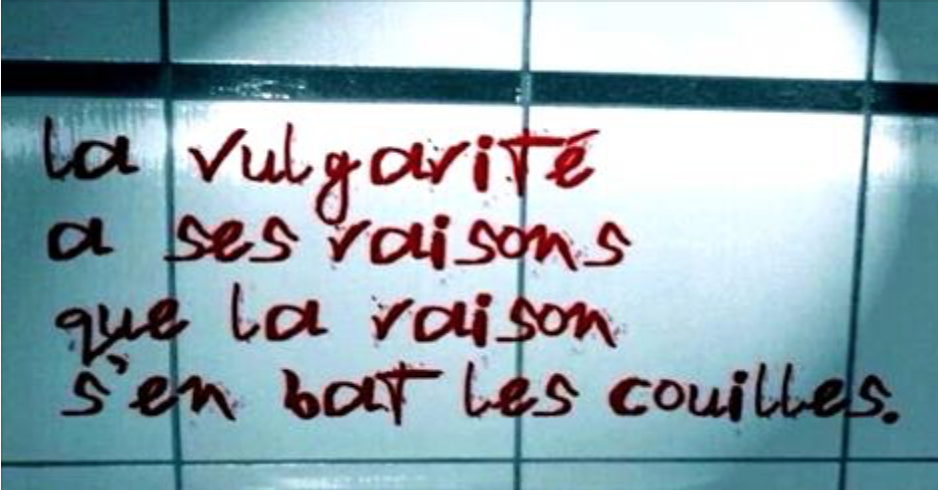 la vulgarité
a ses raisons
que la raison
s'en bat les couilles.